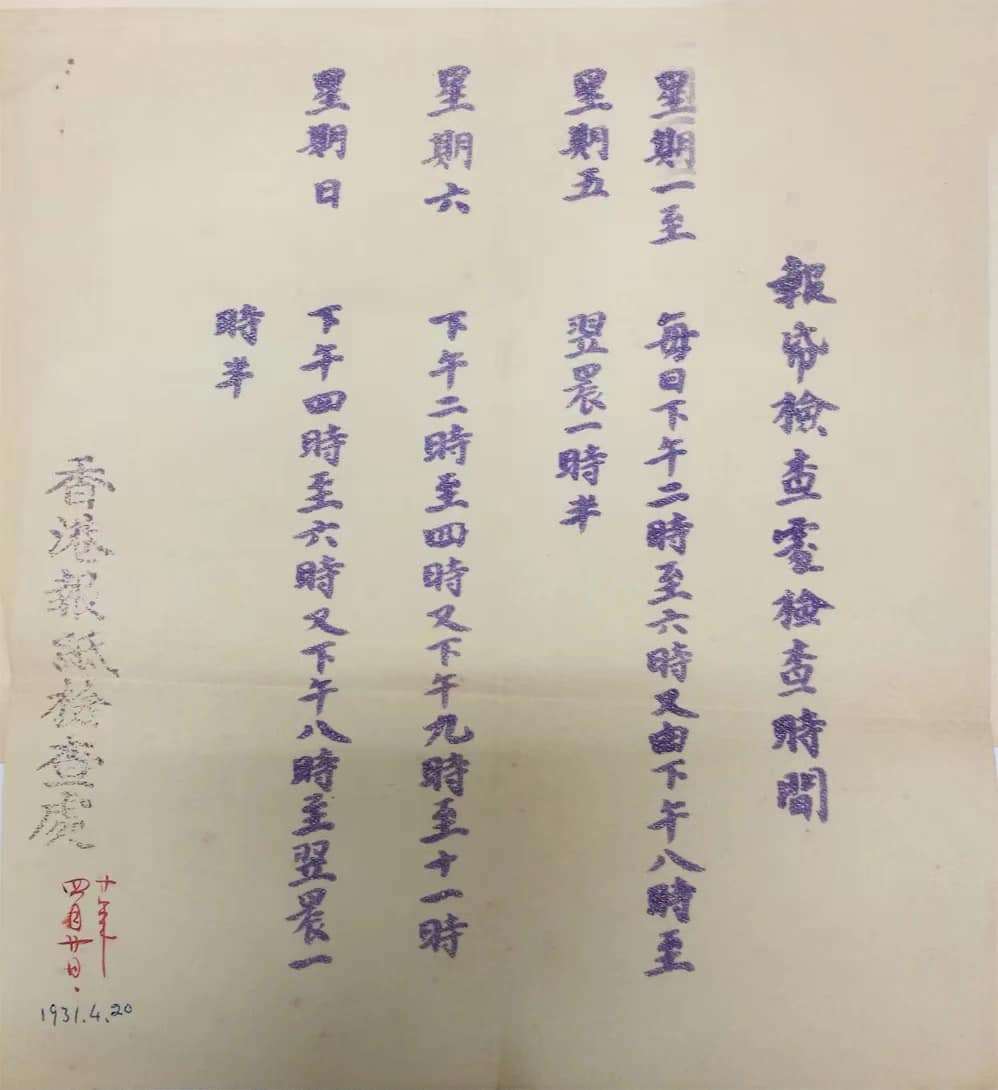 報帋檢查處檢查時間
星期一至　每日下午二時至六時又由下午八時至
星期五　翌晨一時半
星期六　下午二時至四時又下午九時至十一時
星期日　下午四時至六時又下午八時至翌晨一
時半
香港報紙檢查處
廿年
四月廿日.
1931.4.20